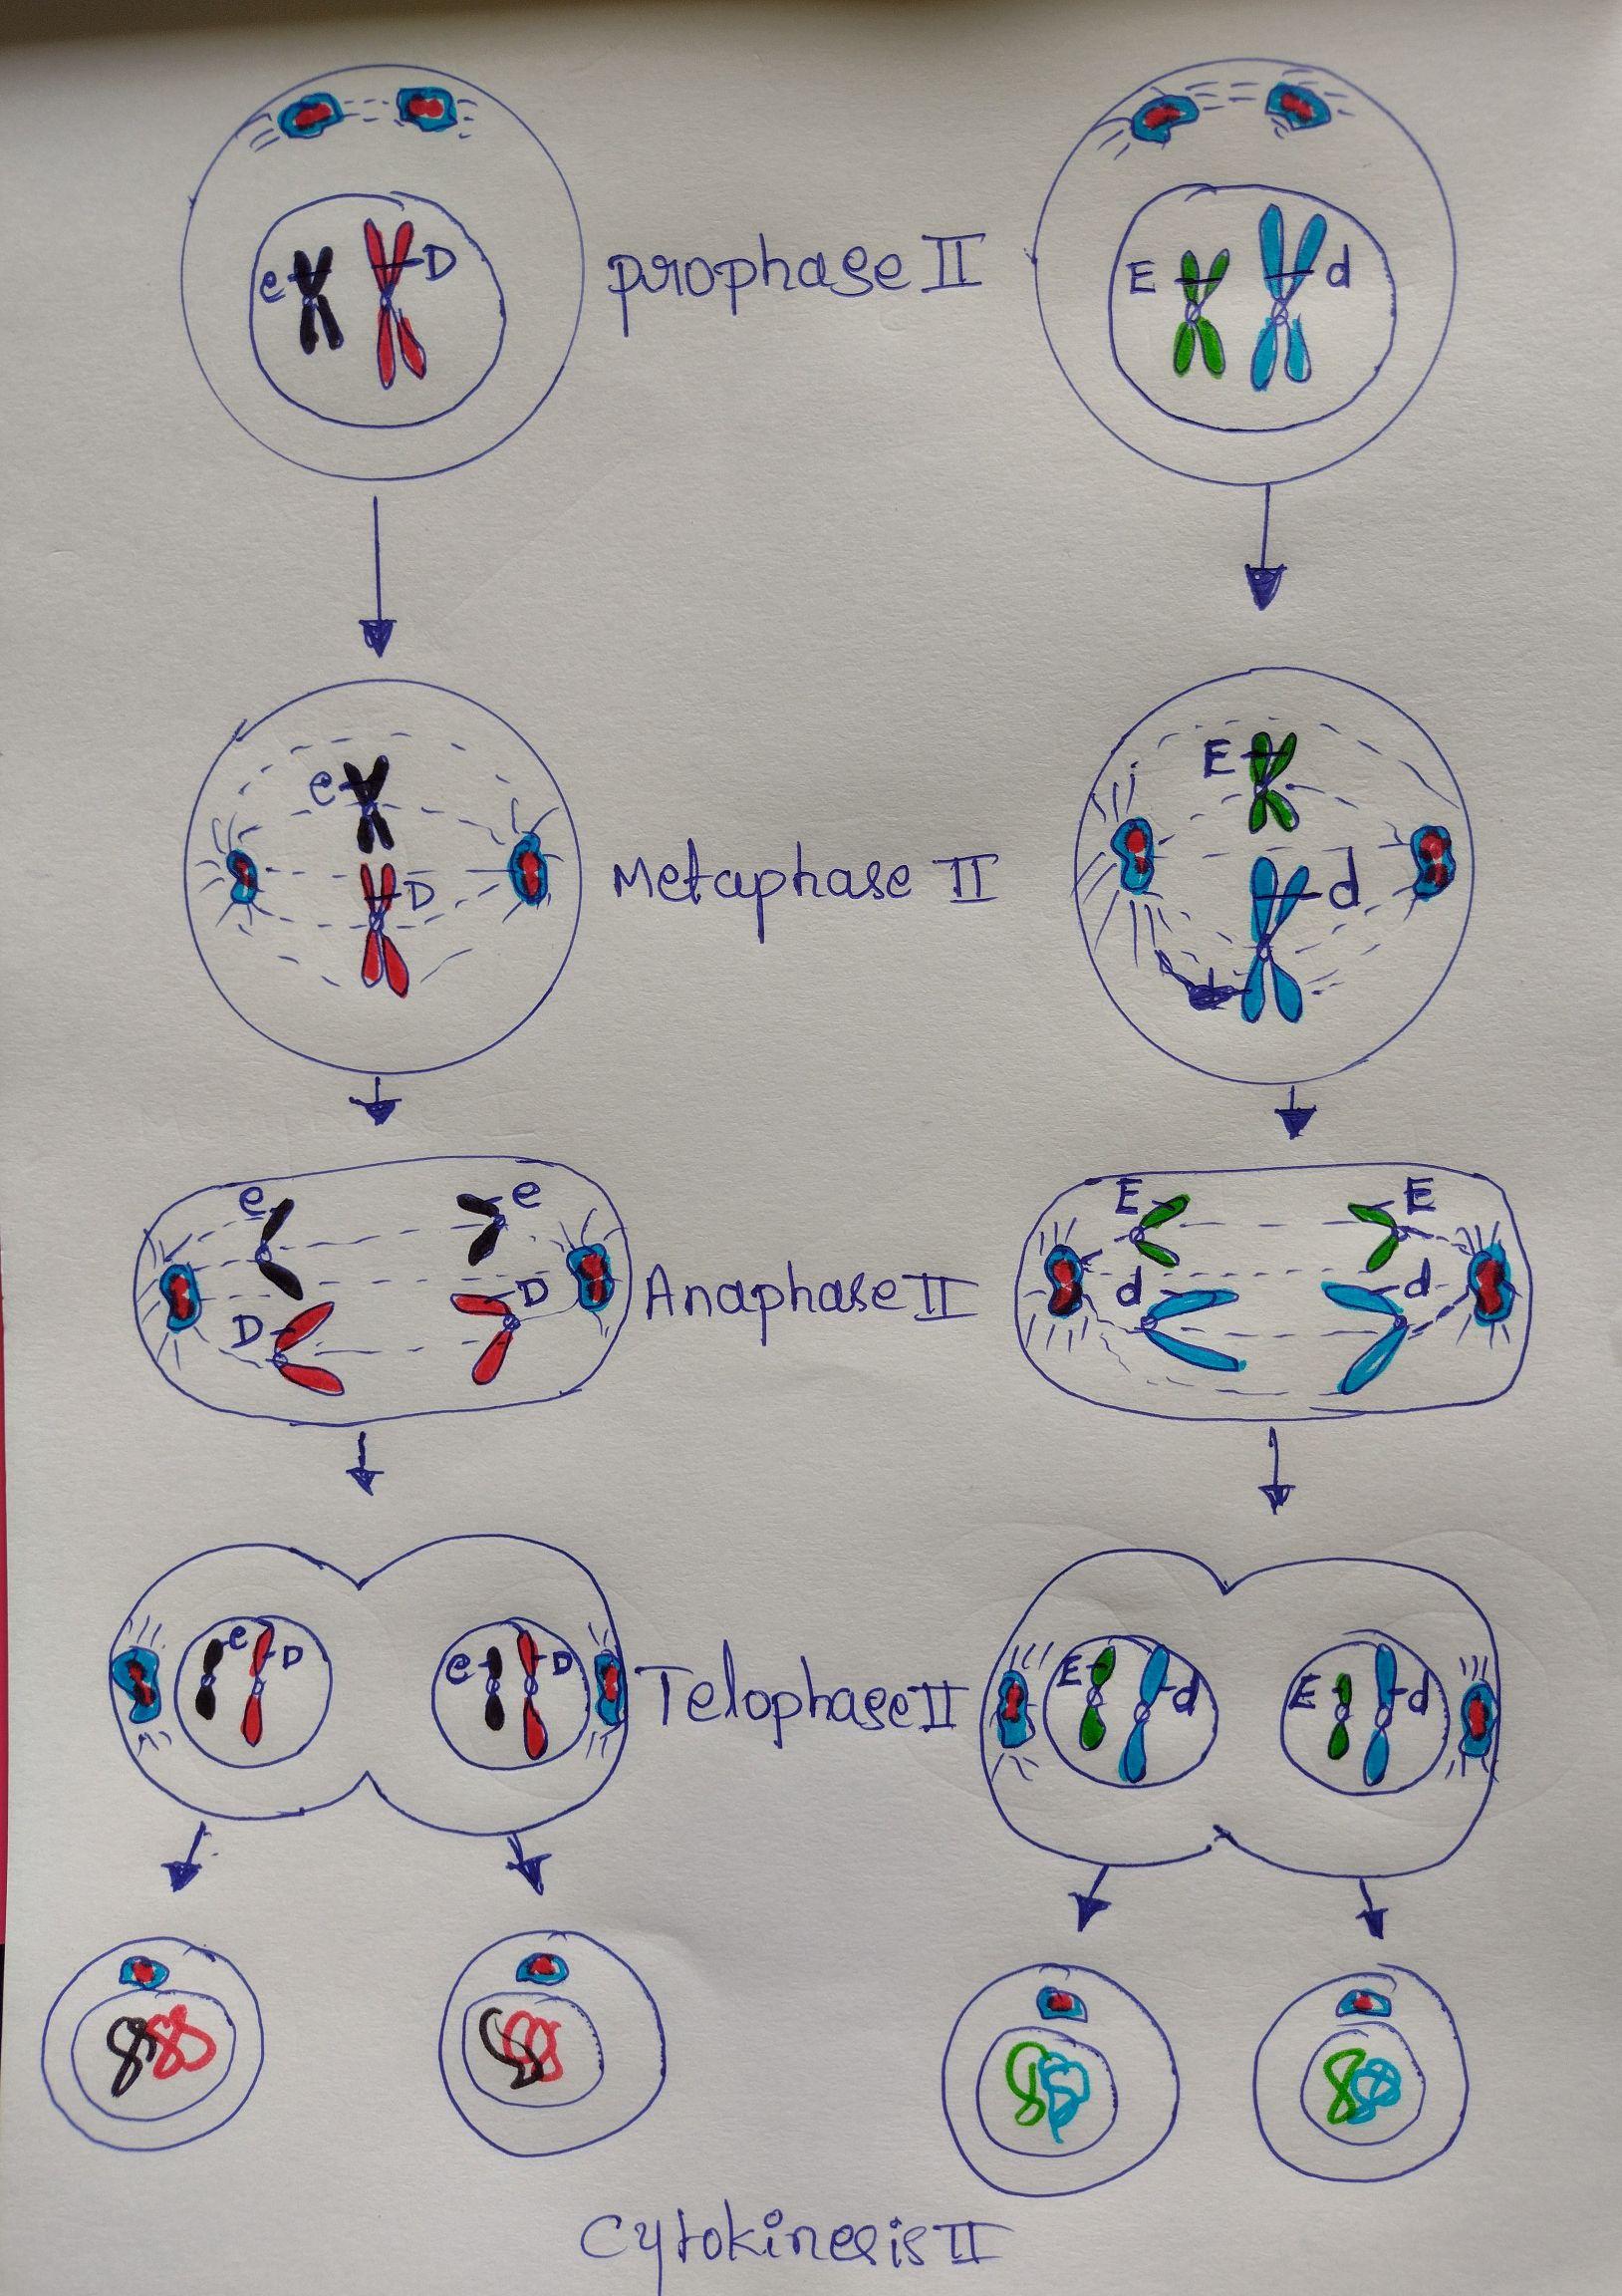 e D prophase II E d
e E
D Metaphase II d
e e E E
D D Anaphase II d d
e D e D Telophase II E d E d
Cytokinesis II